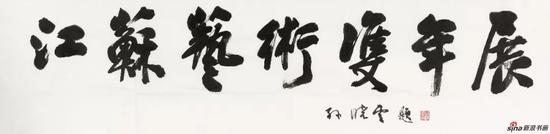 江蘇藝術雙年展
孙晓云 題
sina 新浪书画